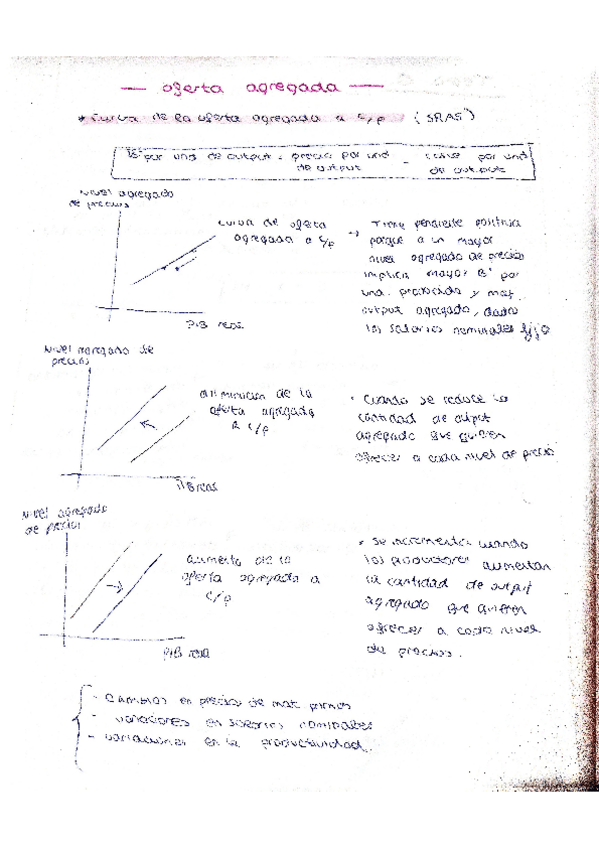 — oferta agregada —
* Curva de la oferta agregada a c/p (SRAS)
Bº por und de output = precio por und de output - coste por und de output
Nivel agregado
de precios
curva de oferta
agregada a c/p
PIB real
→ Tiene pendiente positiva
porque a un mayor
nivel agregado de precios
implica mayor Bº por
und. producida y más
output agregado, dados
los salarios nominales fijo
Nivel agregado de
precios
disminución de la
oferta agregada
a c/p
PIB real
• Cuando se reduce la
cantidad de output
agregado que quieren
ofrecer a cada nivel de precio
Nivel agregado
de precios
aumento de la
oferta agregada a
c/p
PIB real
• se incrementa cuando
los productores aumentan
la cantidad de output
agregado que quieren
ofrecer a cada nivel
de precios.
- Cambios en precios de mat. primas
- variaciones en salarios nominales
- variaciones en la productividad.